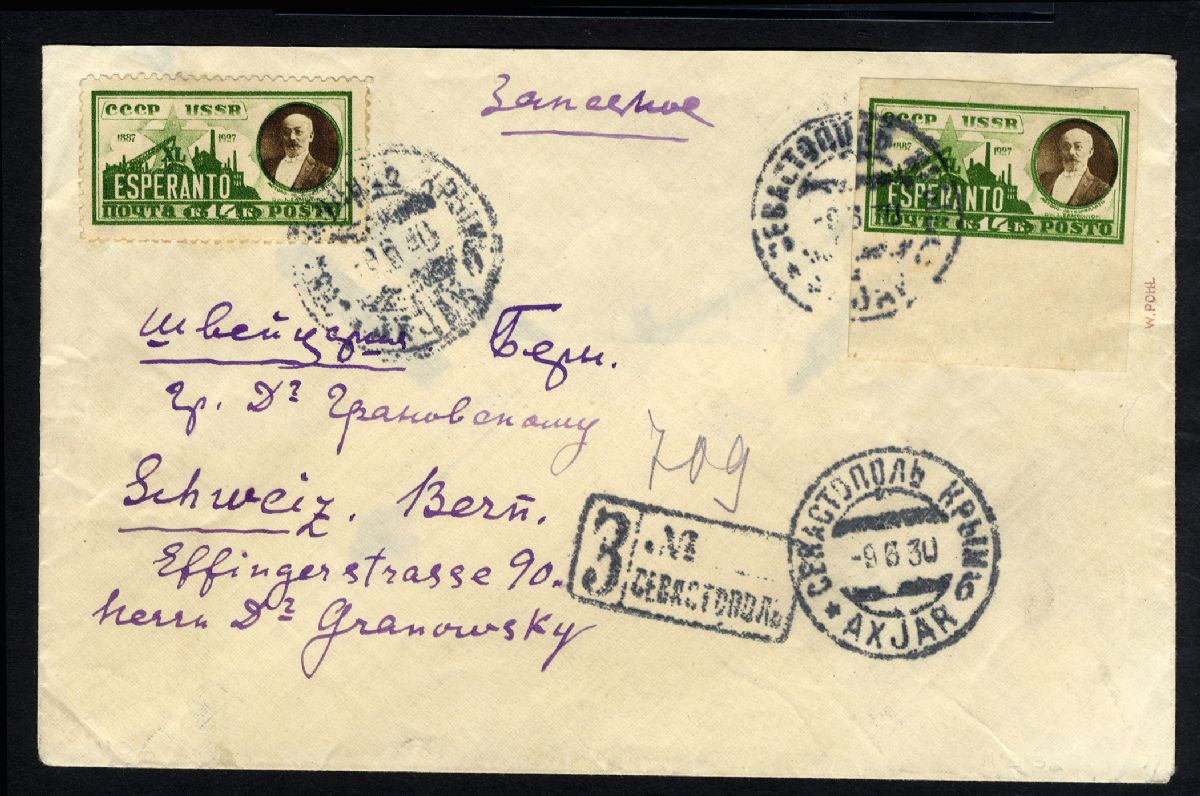 Заказное
СССР USSR
1887 1927
XL
ESPERANTO
ПОЧТА К 14 К POSTO
СССР USSR
1887 1927
XL
ESPERANTO
ПОЧТА К 14 К POSTO
СЕВАСТОПОЛЬ
-9 6 30
AXJAR
W. POHL
Швейцария Берн.
Гр. Др Грановскому
709
Schweiz. Bern.
Effingerstrasse 90.
Herrn Dr Granowsky
З №
СЕВАСТОПОЛЬ
СЕВАСТОПОЛЬ КРЫМ
-9 6 30
б
AXJAR